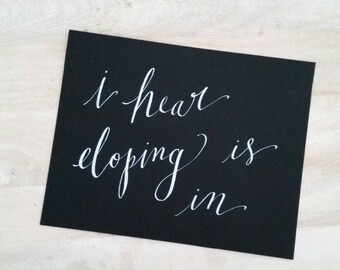 i hear
eloping is
in